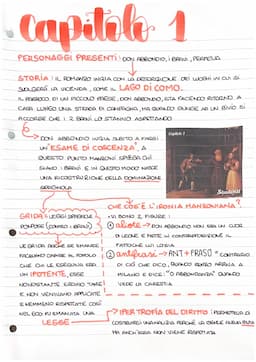 Capitolo 1
PERSONAGGI PRESENTI: DON ABBONDIO, I BRAVI, PERPETUA
STORIA: IL ROMANZO INIZIA CON LA DESCRIZIONE DEI LUOGHI IN CUI SI
SVOLGERÀ LA VICENDA, COME IL LAGO DI COMO.
IL PARROCO DI UN PICCOLO PAESE, DON ABBONDIO, STA FACENDO RITORNO A
CASA LUNGO UNA STRADA DI CAMPAGNA, MA QUANDO GIUNGE AD UN BIVIO SI
ACCORGE CHE I 2 BRAVI LO STANNO ASPETTANDO
DON ABBONDIO INIZIA SUBITO A FARSI
UN "ESAME DI COSCENZA" A
QUESTO PUNTO MANZONI SPIEGA CHI
SIANO I BRAVI E IN QUESTO MODO NASCE
UNA RICOSTRUZIONE DELLA DOMINAZIONE
SPAGNOLA
Capitolo 1
GRIDA: LEGGI
POPOLO (DOMINO I BRAVI)
LE GRIDA, ANCHE SE EMANATE
FACEVANO CAPIRE AL POPOLO
CHE CHI LE ESEGUIVA ERA
UN IPOTENTE, ESSE
NONOSTANTE ERANO TANTE
E NON VENIVANO APPLICATE
E NEMMENO RISPETTATE COSÌ
NEL ERA EMANATA UNA
LEGGE
CHE COS'È L'IRONIA MANZONIANA?
VI SONO 2 FIGURE:
1 aliote → DON ABBONDIO NON ERA UN CUOR
DI LEONE E METTE IN CONTRAPPOSIZIONE IL
FATTO CHE LUI
2 antifrasi → ANTI + FRASO = CONTRARIO
DI CIÒ CHE DICO, QUANDO RENZO ARRIVA A
MILANO E DICE: "O ABBONDANZA" QUANDO
VEDE LA CARESTIA
IPERTROFIA DEL DIRITTO: PERMETTEVA DI
COSTRUIRE UN'ANALISI PERCHÉ LA GRIDA VIENE FATTA
MA ANCH'ESSA NON VIENE RISPETTATA